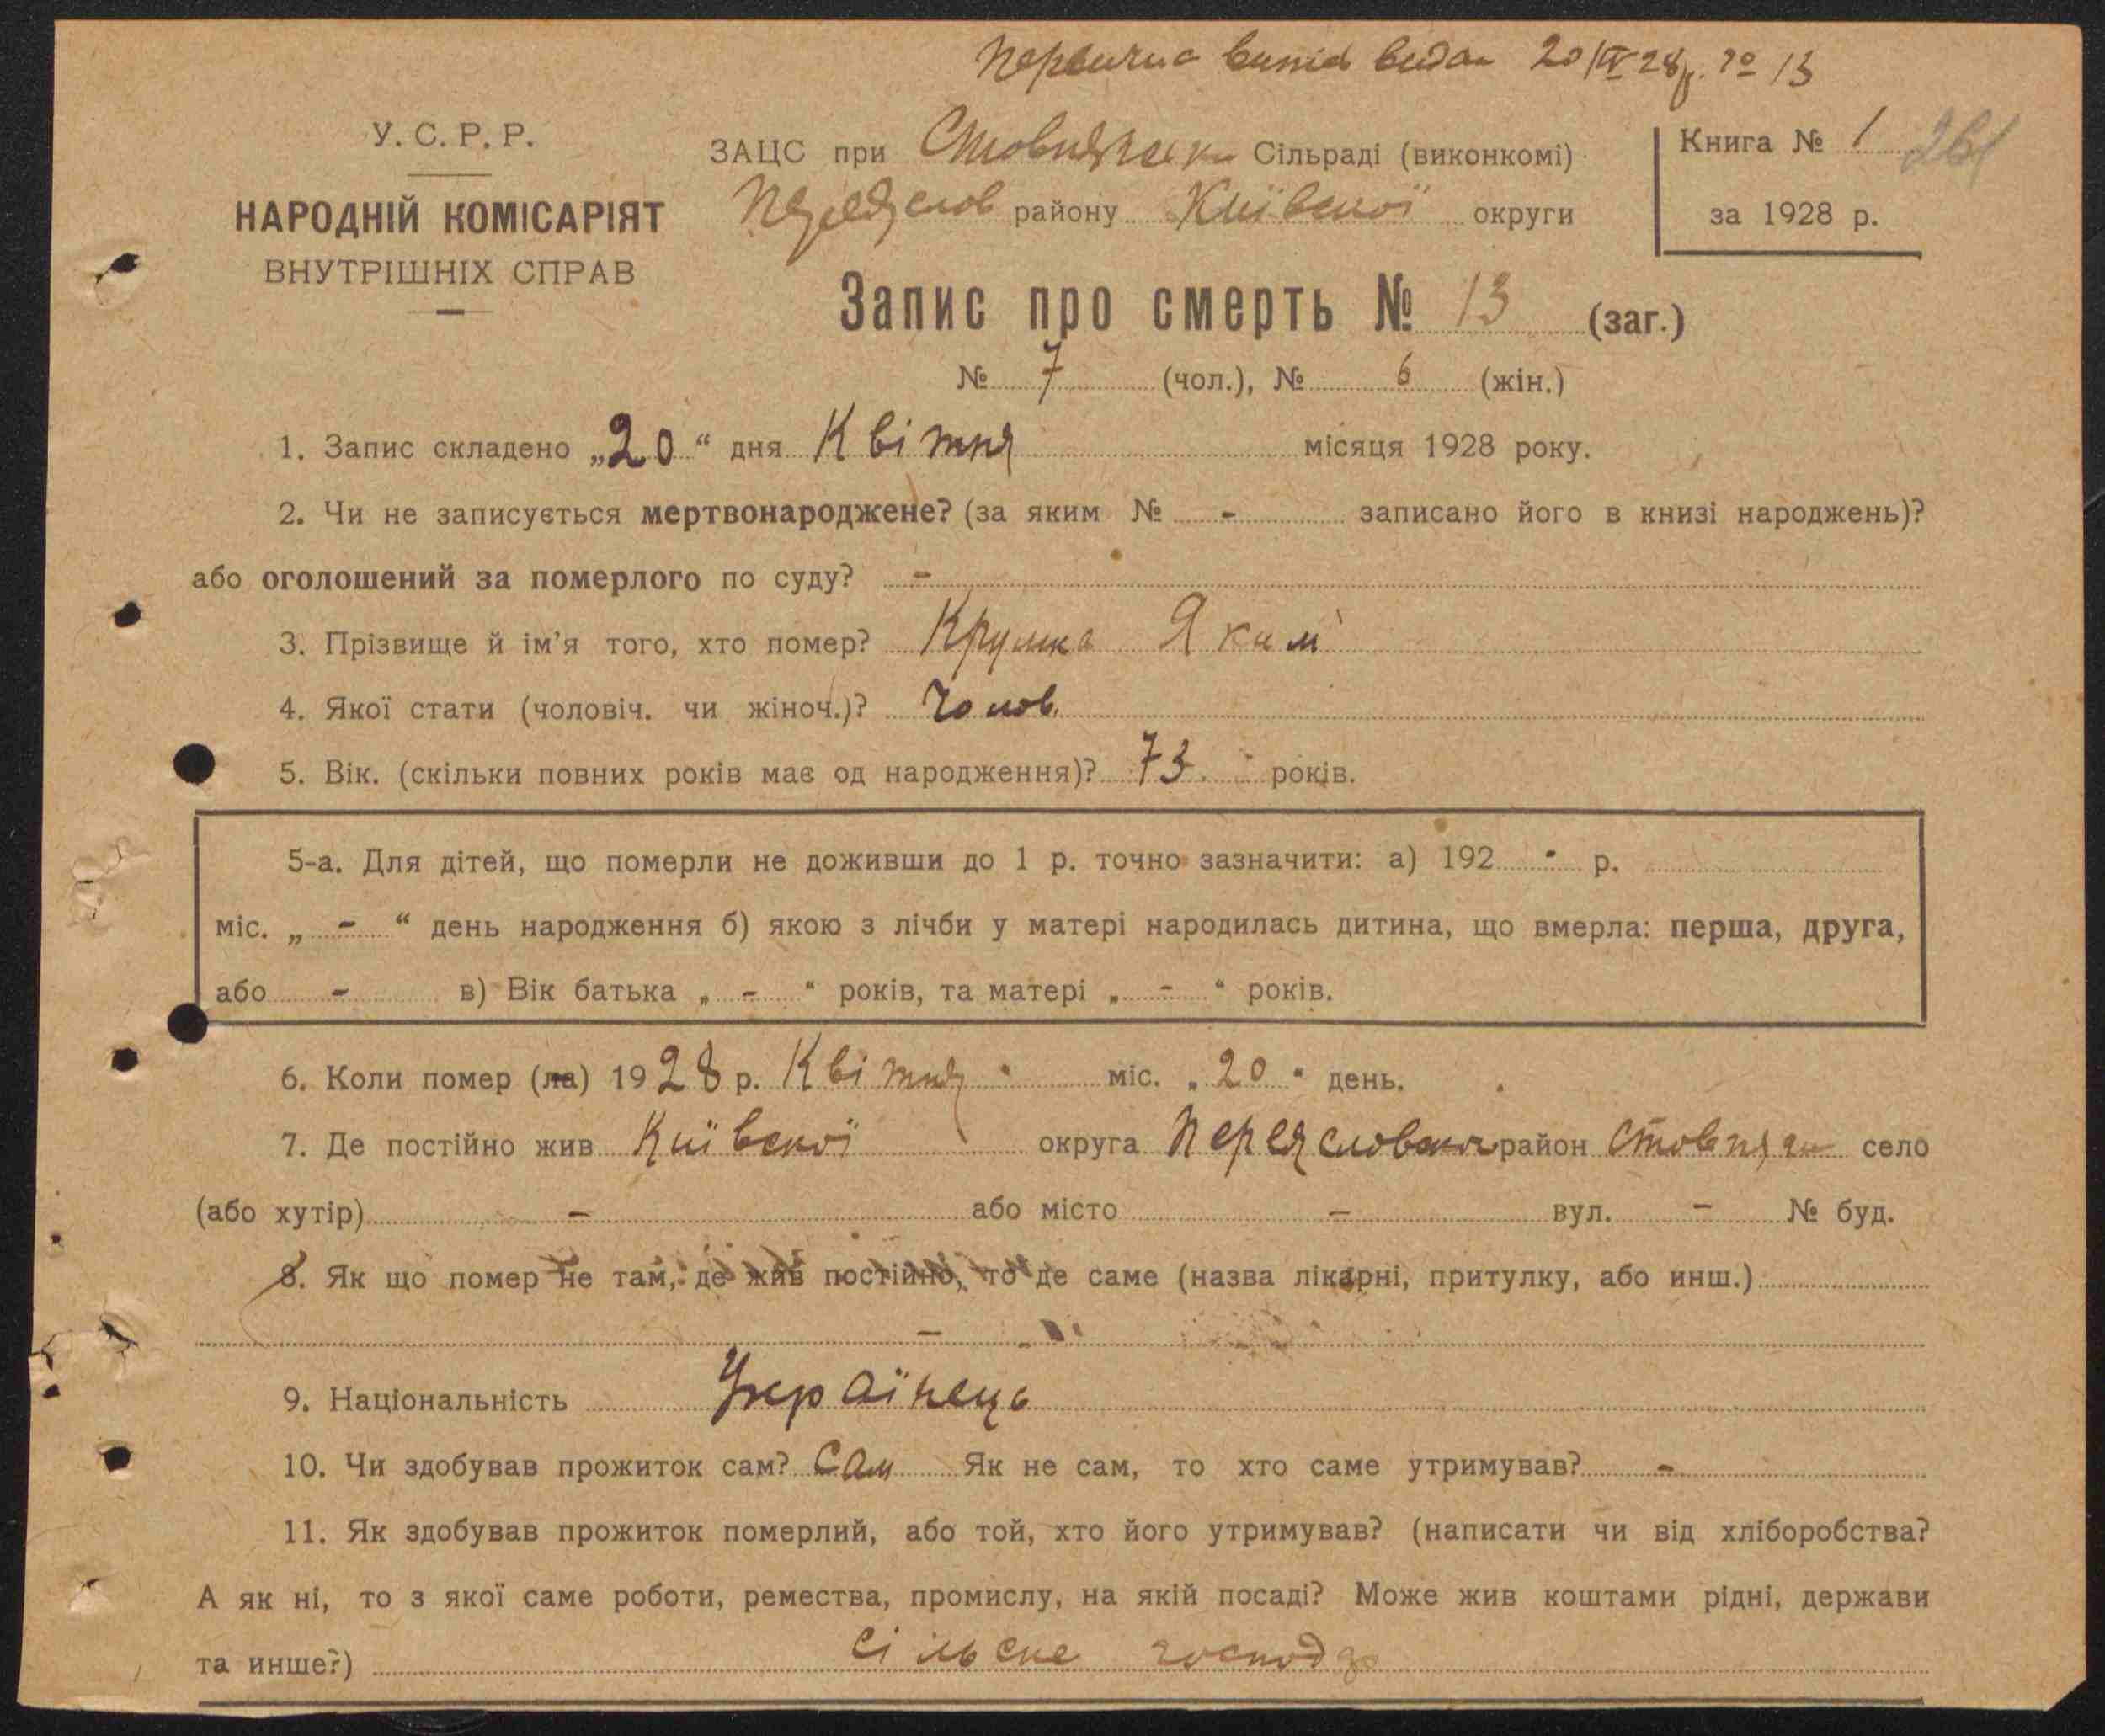 Первична випис видан 20/IV 28р. № 13
У. С. Р. Р.
НАРОДНІЙ КОМІСАРІЯТ
ВНУТРІШНІХ СПРАВ
ЗАЦС при Стовпязьск Сільраді (виконкомі)
Переяслов району Київської округи
Книга № 1 261
за 1928 р.
Запис про смерть № 13 (заг.)
№ 7 (чол.), № 6 (жін.)
1. Запис складено „20“ дня Квітня місяця 1928 року.
2. Чи не записується мертвонароджене? (за яким № - записано його в книзі народжень)?
або оголошений за померлого по суду? -
3. Прізвище й ім’я того, хто помер? Крушка Яким
4. Якої стати (чоловіч. чи жіноч.)? Чолов.
5. Вік. (скільки повних років має од народження)? 73 років.
5-а. Для дітей, що померли не доживши до 1 р. точно зазначити: а) 192 - р.
міс. „ - “ день народження б) якою з лічби у матері народилась дитина, що вмерла: перша, друга,
або - в) Вік батька „ - “ років, та матері „ - “ років.
6. Коли помер (ла) 1928 р. Квітня міс. „20“ день.
7. Де постійно жив Київської округа Переясловськ район Стовпяги село
(або хутір) - або місто - вул. - № буд.
8. Як що помер не там, де жив постійно, то де саме (назва лікарні, притулку, або инш.)
-
9. Національність Українець
10. Чи здобував прожиток сам? Сам Як не сам, то хто саме утримував? -
11. Як здобував прожиток померлий, або той, хто його утримував? (написати чи від хліборобства?
А як ні, то з якої саме роботи, ремества, промислу, на якій посаді? Може жив коштами рідні, держави
та инше?) сільське господ